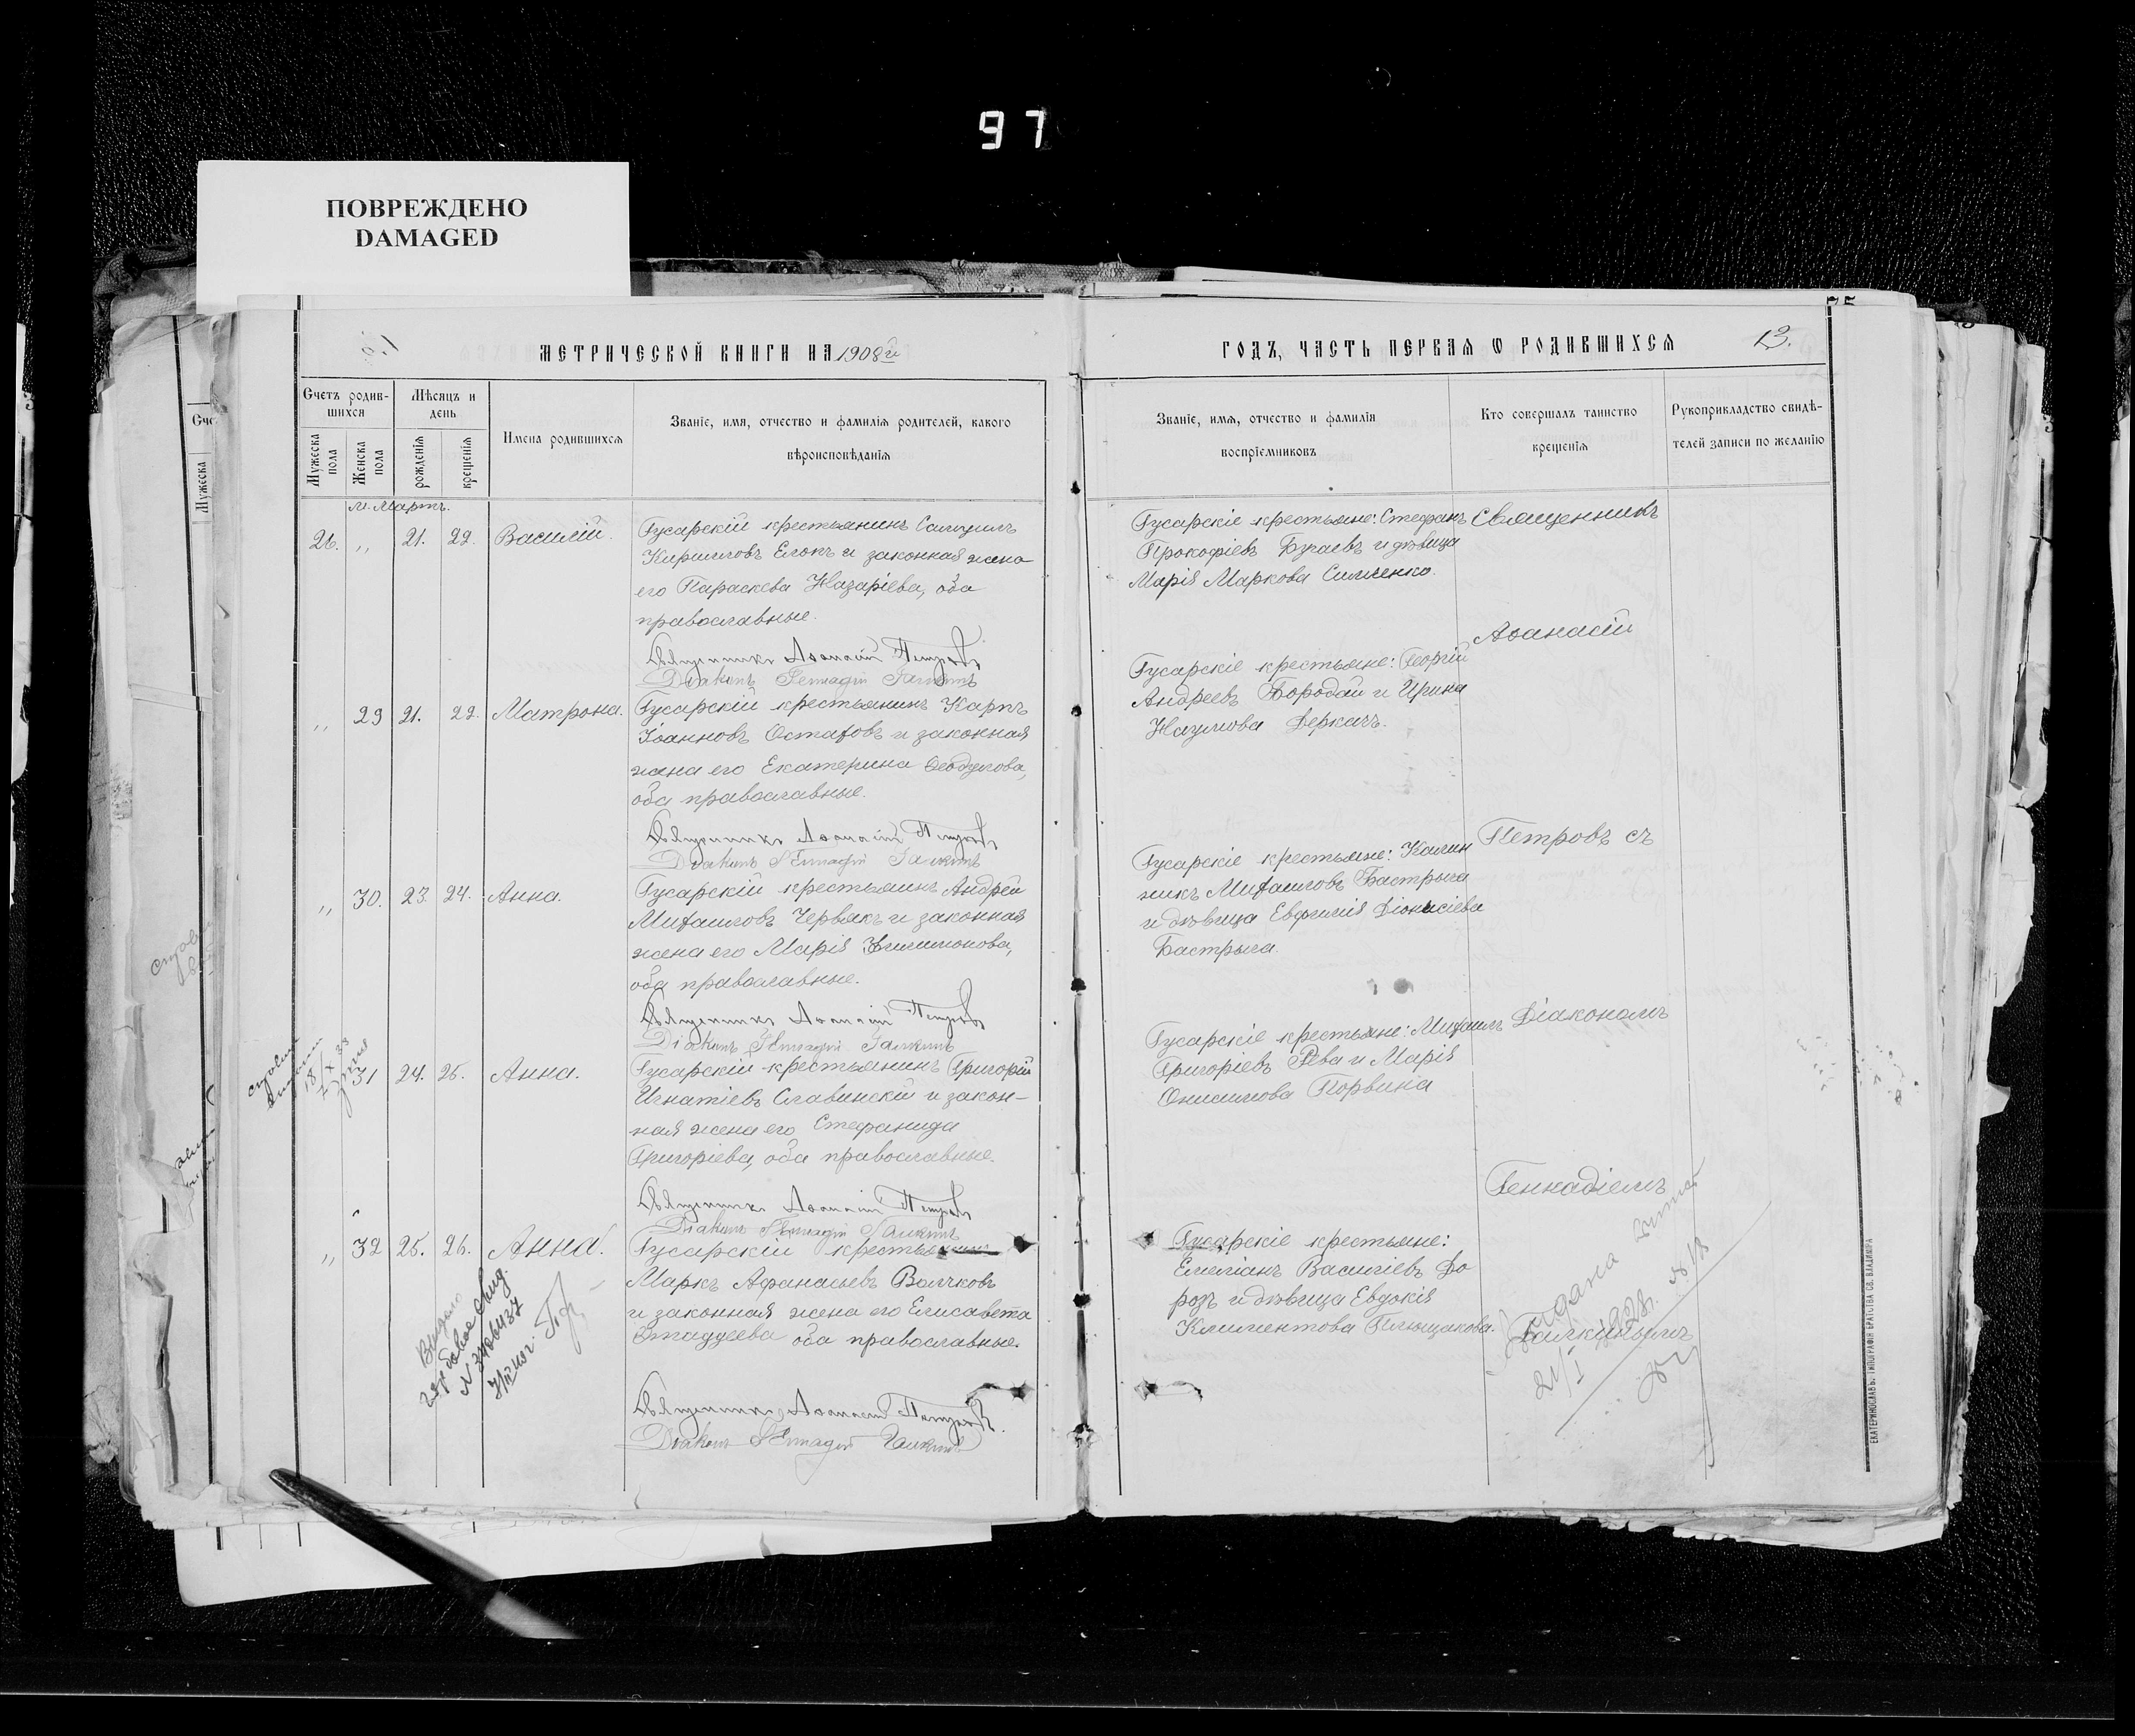 97
ПОВРЕЖДЕНО
DAMAGED
МЕТРИЧЕСКОЙ КНИГИ НА 1908й
Счетъ родив-
шихся
Мѣсяцъ и
день
Мужеска
пола
Женска
пола
рожденія
крещенія
Имена родившихся
Званіе, имя, отчество и фамилія родителей, какого
вѣроисповѣданія
м. Мартъ.
26. „ 21. 22. Василій.
Гусарскій крестьянинъ Самуилъ
Кирилловъ Елокъ и законная жена
его Параскева Назаріева, оба
православные.
Священникъ Аѳанасій Петровъ
Діаконъ Геннадій Галкинъ
„ 29 21. 22. Матрона.
Гусарскій крестьянинъ Карпъ
Іоанновъ Остаховъ и законная
жена его Екатерина
оба православные.
Священникъ Аѳанасій Петровъ
Діаконъ Геннадій Галкинъ
„ 30. 23. 24. Анна.
Гусарскій крестьянинъ Андрей
Михаиловъ Червякъ и законная
жена его Марія Филимонова,
оба православные.
Священникъ Аѳанасій Петровъ
Діаконъ Геннадій Галкинъ
31 24. 25. Анна.
Гусарскій крестьянинъ Григорій
Игнатіевъ Славинскій и закон-
ная жена его Стефанида
Григоріева, оба православные.
Священникъ Аѳанасій Петровъ
Діаконъ Геннадій Галкинъ
„ 32 25. 26. Анна.
Гусарскій крестьянинъ
Маркъ Афанасьевъ Волчковъ
и законная жена его Елисавета
оба православные.
Священникъ Аѳанасій Петровъ
Діаконъ Геннадій Галкинъ
Выдано
N
ГОДЪ, ЧАСТЬ ПЕРВАЯ Ѡ РОДИВШИХСЯ
13.
Званіе, имя, отчество и фамилія
воспріемниковъ
Кто совершалъ таинство
крещенія
Рукоприкладство свидѣ-
телей записи по желанію
Гусарскіе крестьяне: Стефанъ
Прокофіевъ Бугаевъ и дѣвица
Марія Маркова Симченко.
Гусарскіе крестьяне: Георгій
Андреевъ Бородай и Ирина
Наумова Деркачъ.
Гусарскіе крестьяне: Калин
никъ Михаиловъ Бастрыга
и дѣвица Евфимія Діонисіева
Бастрыга.
Гусарскіе крестьяне: Михаилъ
Григоріевъ Рева и Марія
Онисимова Порвина
Гусарскіе крестьяне:
Емеліанъ Василіевъ До
розъ и дѣвица Евдокія
Климентова Плющакова.
Священникъ
Аѳанасій
Петровъ съ
Діакономъ
Геннадіемъ
Галкинымъ
ЕКАТЕРИНОСЛАВЪ. ТИПОГРАФІЯ БРАТСТВА СВ. ВЛАДИМІРА